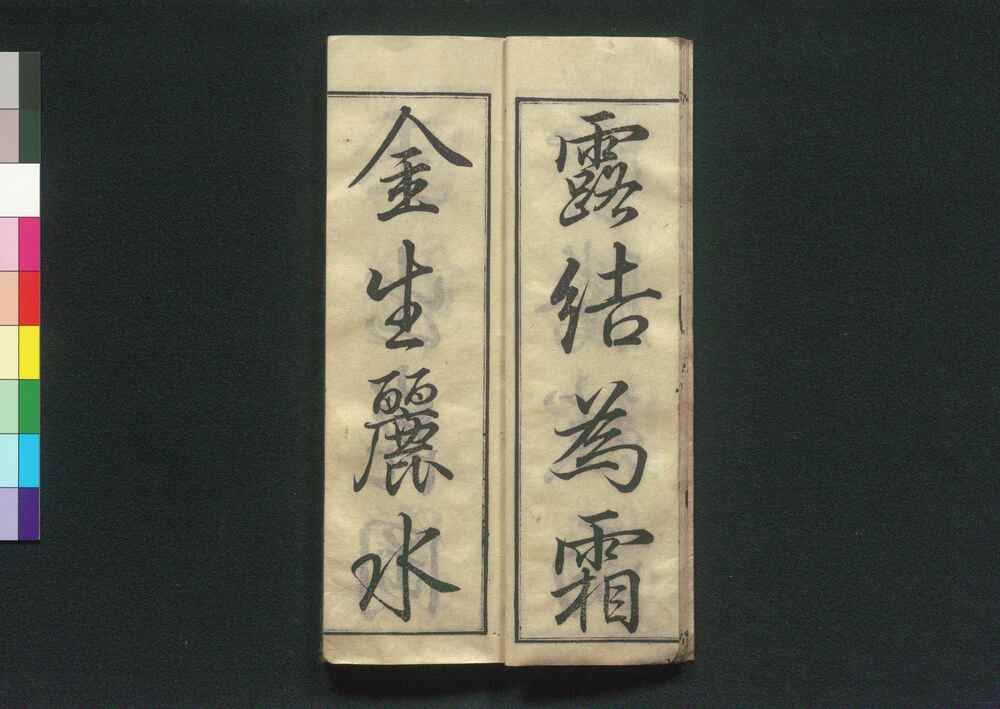 露結為霜
金生麗水